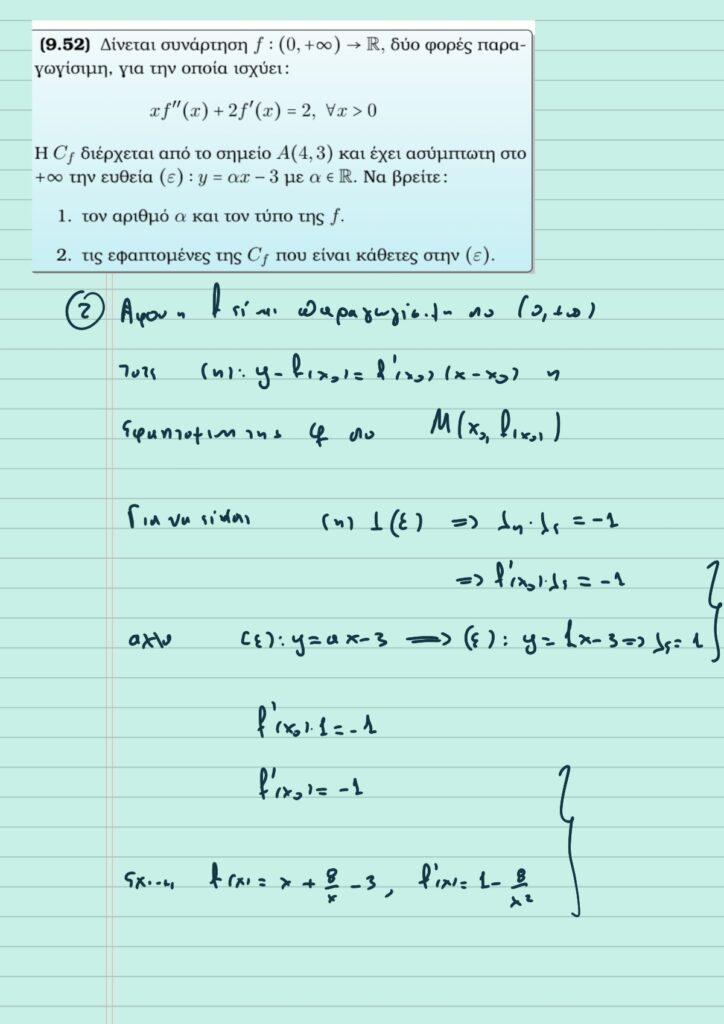 (9.52) Δίνεται συνάρτηση f : (0, +∞) → ℝ, δύο φορές παρα-
γωγίσιμη, για την οποία ισχύει:
xf''(x) + 2f'(x) = 2, ∀x > 0
Η C_f διέρχεται από το σημείο A(4, 3) και έχει ασύμπτωτη στο
+∞ την ευθεία (ε) : y = αx − 3 με α ∈ ℝ. Να βρείτε:
1. τον αριθμό α και τον τύπο της f.
2. τις εφαπτομένες της C_f που είναι κάθετες στην (ε).
② Αφου η f είναι παραγωγίσιμη στο (0,+∞)
τοτε (η): y − f(x₀) = f'(x₀) (x − x₀) η
εφαπτομενη της Cf στο M(x₀, f(x₀))
Για να ειναι (η) ⊥ (ε) => λη · λε = −1
=> f'(x₀) · λε = −1
(ε): y = αx − 3 => (ε): y = 1x − 3 => λε = 1
f'(x₀) · 1 = −1
f'(x₀) = −1
f(x) = x + 8/x − 3, f'(x) = 1 − 8/x²